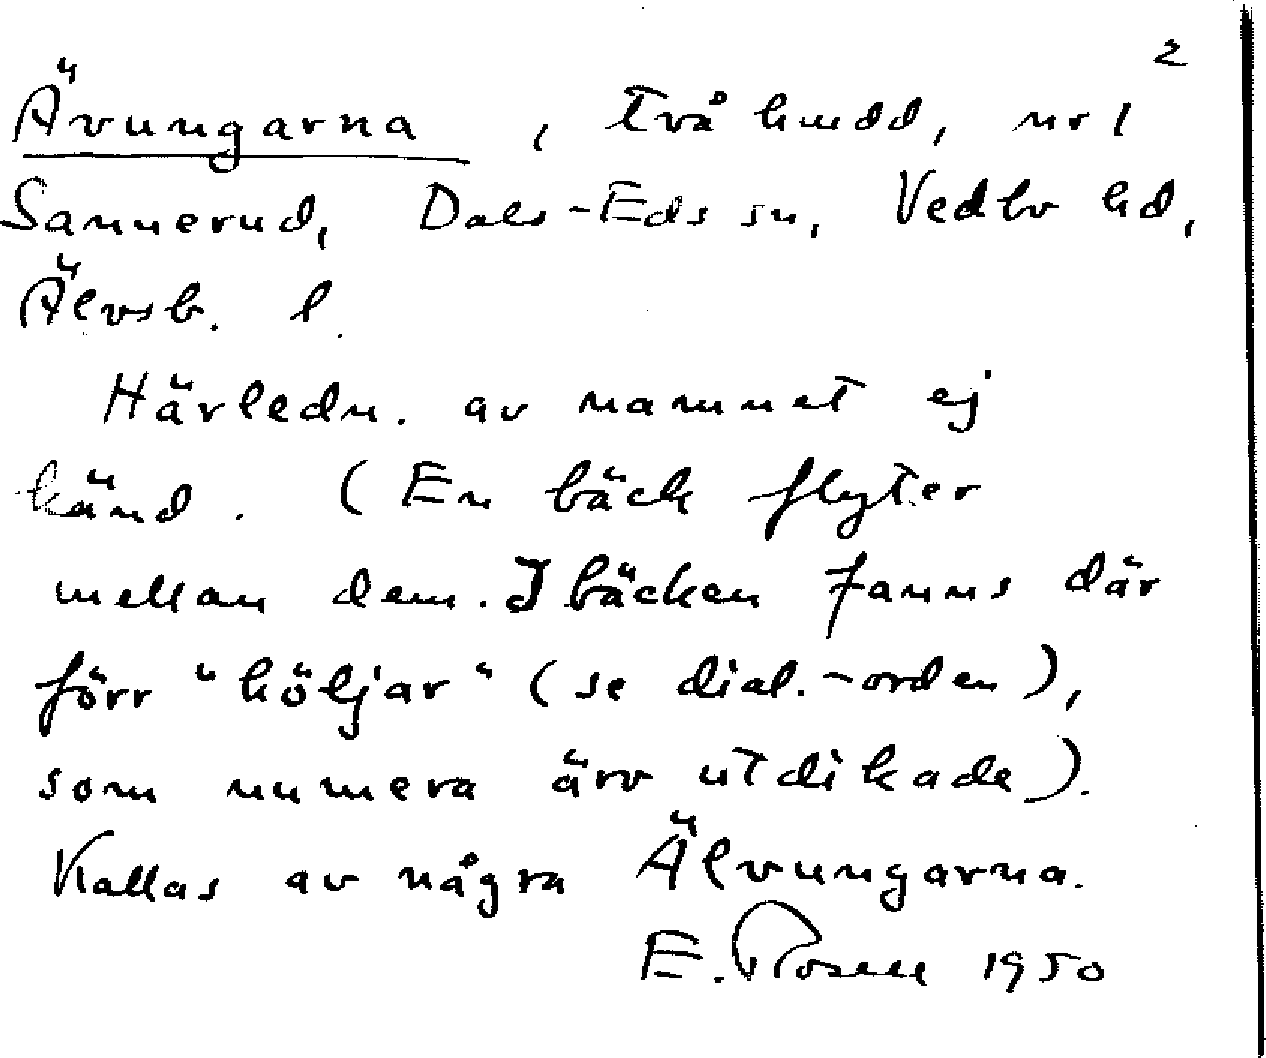 2
Ävungarna, två hmdd, nr 1
Sannerud, Dals-Eds sn, Vedbo hd,
Älvsb. l.
Härledn. av namnet ej
känd. (En bäck flyter
mellan dem. I bäcken fanns där
förr "höljar" (se dial.-orden),
som numera äro utdikade).
Kallas av några Älvungarna.
E. Rosell 1950